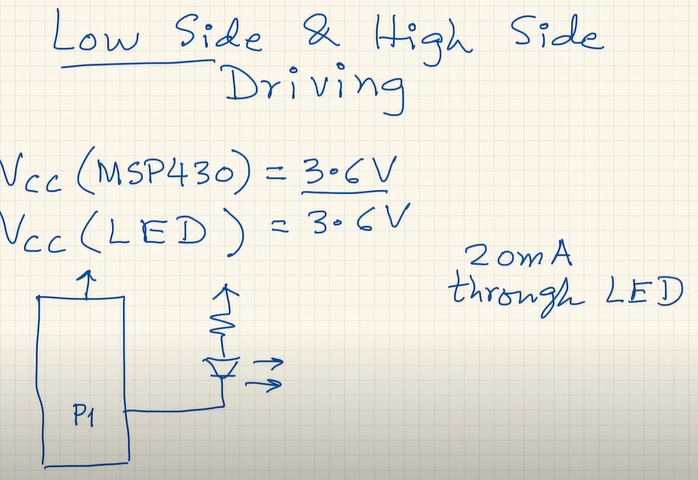 Low Side & High Side
Driving
VCC (MSP430) = 3.6V
VCC (LED) = 3.6V
20mA
through LED
P1